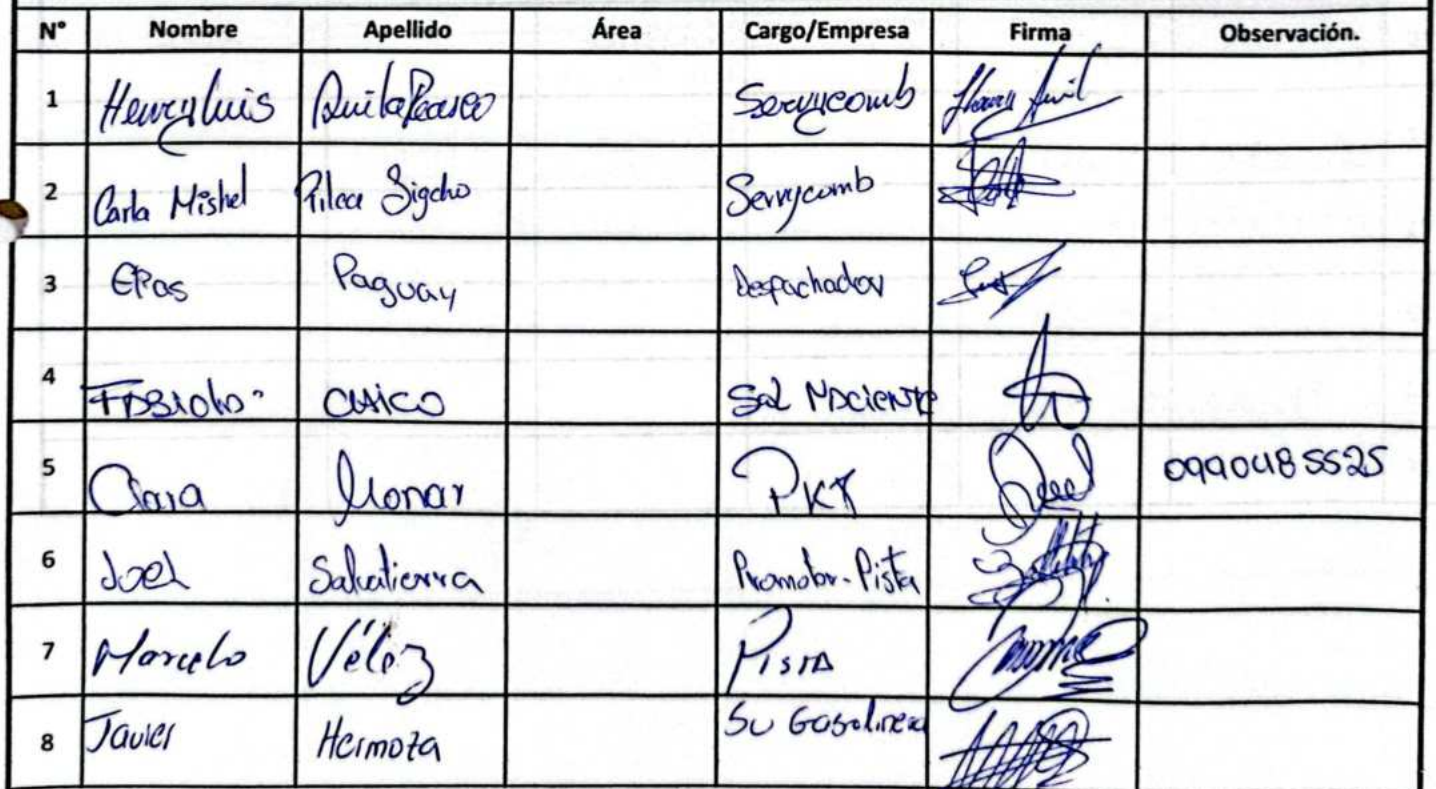 N° Nombre Apellido Área Cargo/Empresa Firma Observación.
1 Henry Luis Servycomb
2 Carla Mishel Pilca Sigcho Servycomb
3 Paguay Despachador
4 Fabiola CHICO Sol Naciente
5 Clara Monar PKT 0990485525
6 Joel Salvatierra Promotor-Pista
7 Marcelo Véliz Pista
8 Javier Hermoza Su Gasolinera